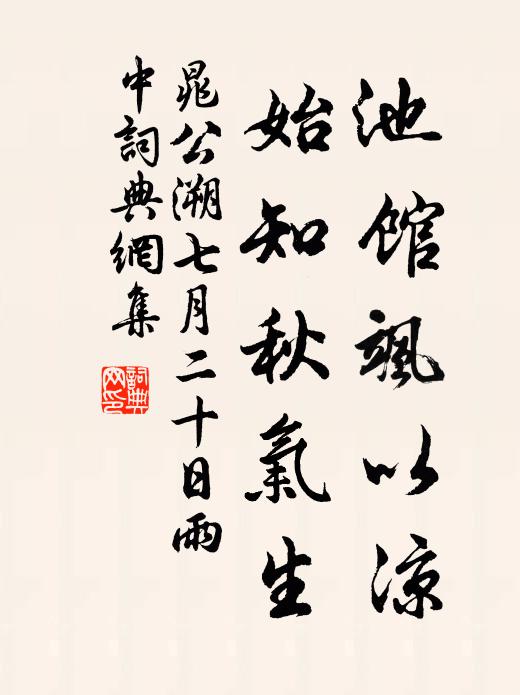 池館颯以涼
始知秋氣生
晁公溯七月二十日雨
中詞典網集
詞典网印